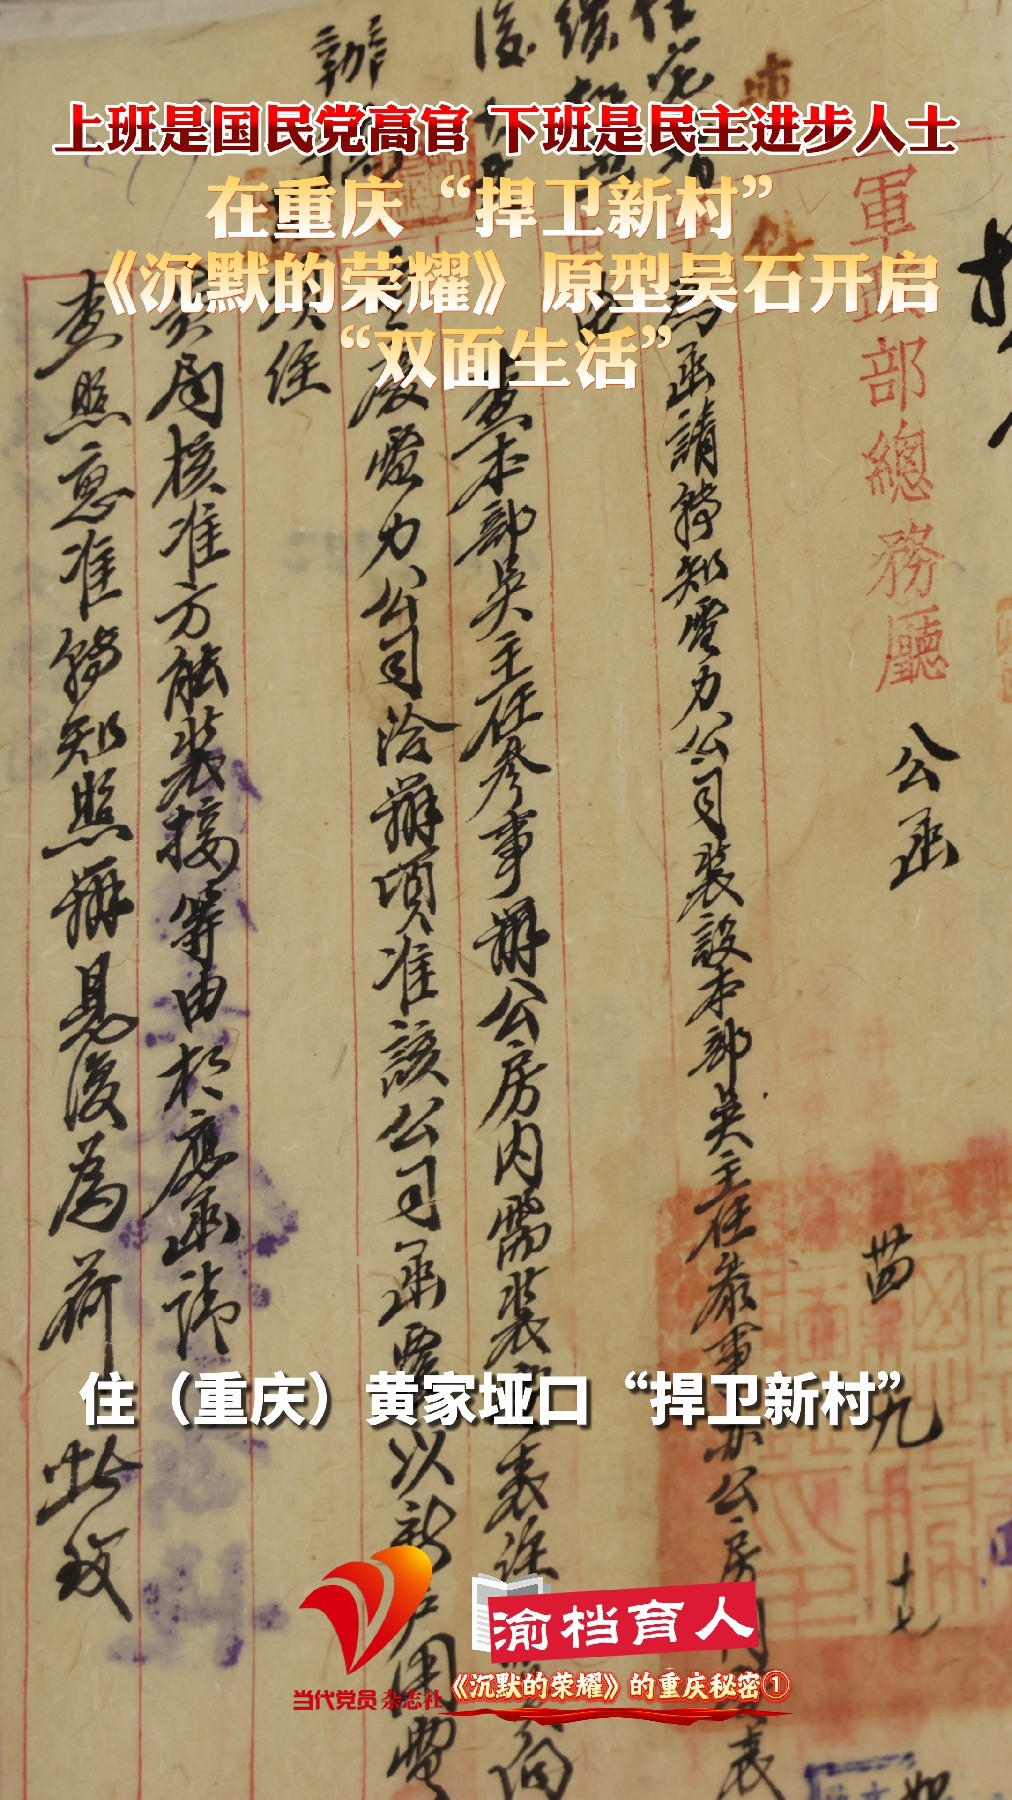 上班是国民党高官 下班是民主进步人士
在重庆“捍卫新村”
《沉默的荣耀》原型吴石开启
“双面生活”
軍 部總務廳 公函
為函請轉知電力公司裝設本部吳主任參事辦公房 表
查本部吳主任參事辦公房內需裝 表
電力公司洽辦頃准該公司函 以新戶用電
局核准方能裝接等由相應函請
查照惠准轉知照辦見復為荷 此致
苗 九 十七
住（重庆）黄家垭口“捍卫新村”
当代党员 杂志社
渝档育人
《沉默的荣耀》的重庆秘密①